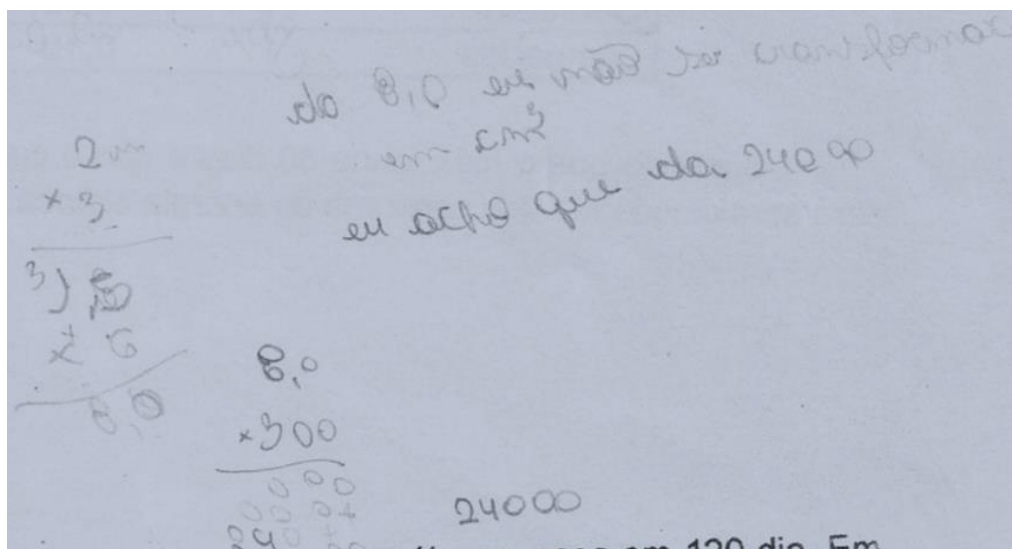 da 8,0 eu não sei transformar
em cm³
eu acho que da 24000
2 m
x 3
x 6
8,0
8,0
x300
000
24000
120 dig. Em